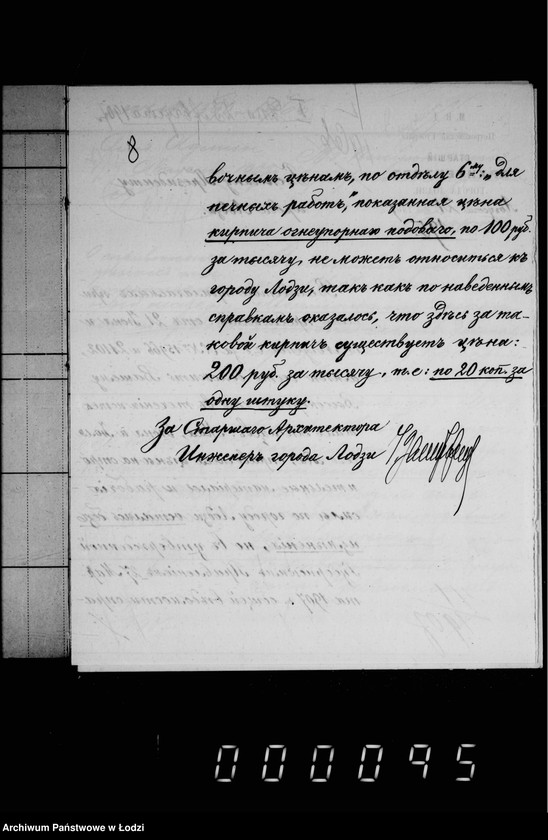 8
вочнымъ цѣнамъ, по отдѣлу 6му: „для
печныхъ работъ," показанная цѣна
кирпича огнеупорнаго подоваго, по 100 руб.
за тысячу, не можетъ относиться къ
городу Лодзи, такъ какъ по наведеннымъ
справкамъ оказалось, что здѣсь за та-
ковой кирпичъ существуетъ цѣна:
200 руб. за тысячу, т.е: по 20 коп. за
одну штуку.
За Старшаго Архитектора
Инженеръ города Лодзи
000095
Archiwum Państwowe w Łodzi